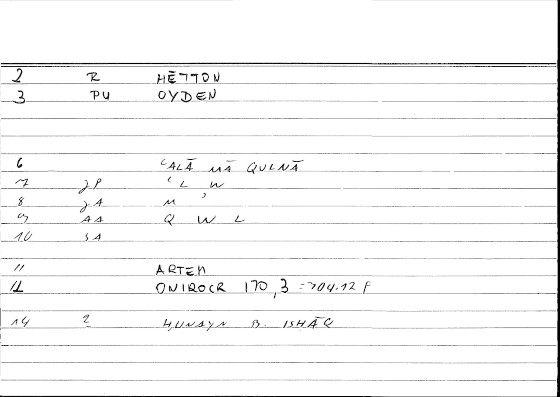 2 R HĒTTON
3 PU OYDEN
6 ʿALĀ MĀ QULNĀ
7 JP ʿ L W
8 JA M ʾ
9 AA Q W L
10 SA
11 ARTEM
12 ONIROCR 170,3 = 704.12 P
14 2 ḤUNAYN B. ISḤĀQ